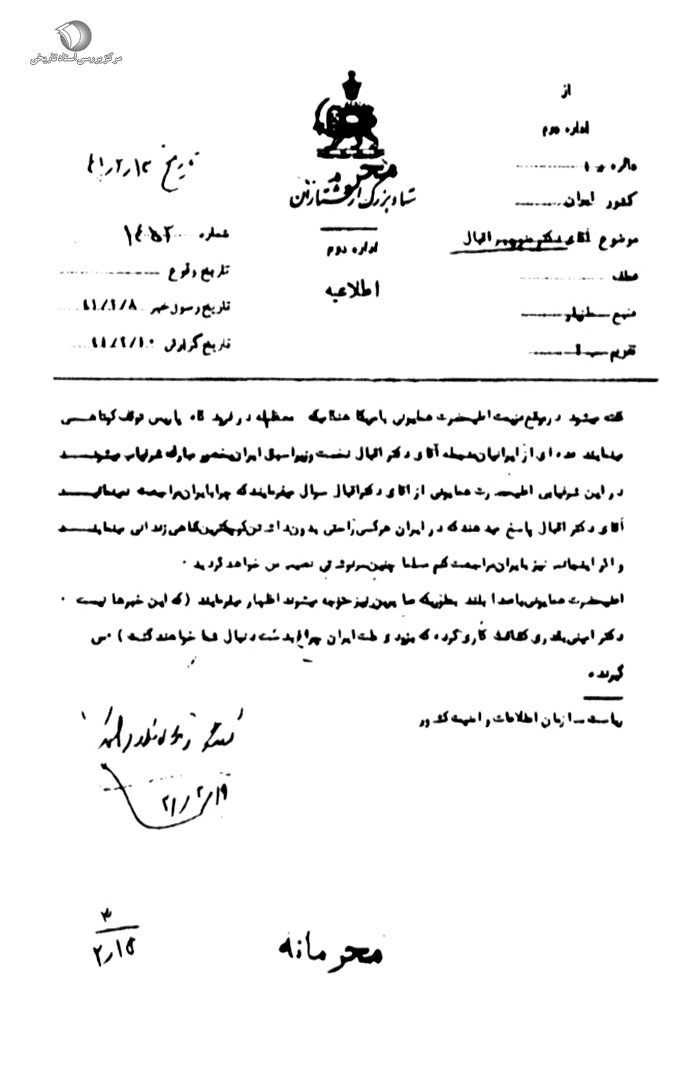 مرکز بررسی اسناد تاریخی
از
اداره دوم
دائره
کشور ایران
موضوع آقای دکتر منوچهر اقبال
عطف
منبع
تقویم
محرمانه
ستاد بزرگ ارتشتاران
اداره دوم
اطلاعیه
تاریخ ۴۱٫۲٫۱۳
شماره ۱۴۵۲
تاریخ وقوع
تاریخ رسول خبر ۴۱/۲/۸
تاریخ گزارش ۴۱/۲/۱۰
گفته میشود در موقع عزیمت اعلیحضرت همایونی بامریکا هنگامیکه معظم‌له در فرودگاه پاریس توقف کوتاهی
مینمایند عده‌ای از ایرانیان منجمله آقای دکتر اقبال نخست وزیر اسبق ایران بحضور مبارک شرفیاب میشوند
در این شرفیابی اعلیحضرت همایونی از آقای دکتر اقبال سوال میفرمایند که چرا بایران مراجعت نمیکنید
آقای دکتر اقبال پاسخ میدهند که در ایران هرکس براحتی بدون داشتن کوچکترین گناهی زندانی مینمایند
و اگر اینجانب نیز بایران مراجعت کنم مسلما چنین سرنوشتی نصیب من خواهد گردید .
اعلیحضرت همایونی با صدا بلند بطوریکه سایرین نیز متوجه میشوند اظهار میفرمایند (که این خبرها نیست .
دکتر امینی بقدری کثافت کاری کرده که بزودی ملت ایران چراغ بدست دنبال شما خواهند گشت) می
گیرند.
ریاست سازمان اطلاعات و امنیت کشور
۲۱/۲/۱۹
۳
۲٫۱۵
محرمانه